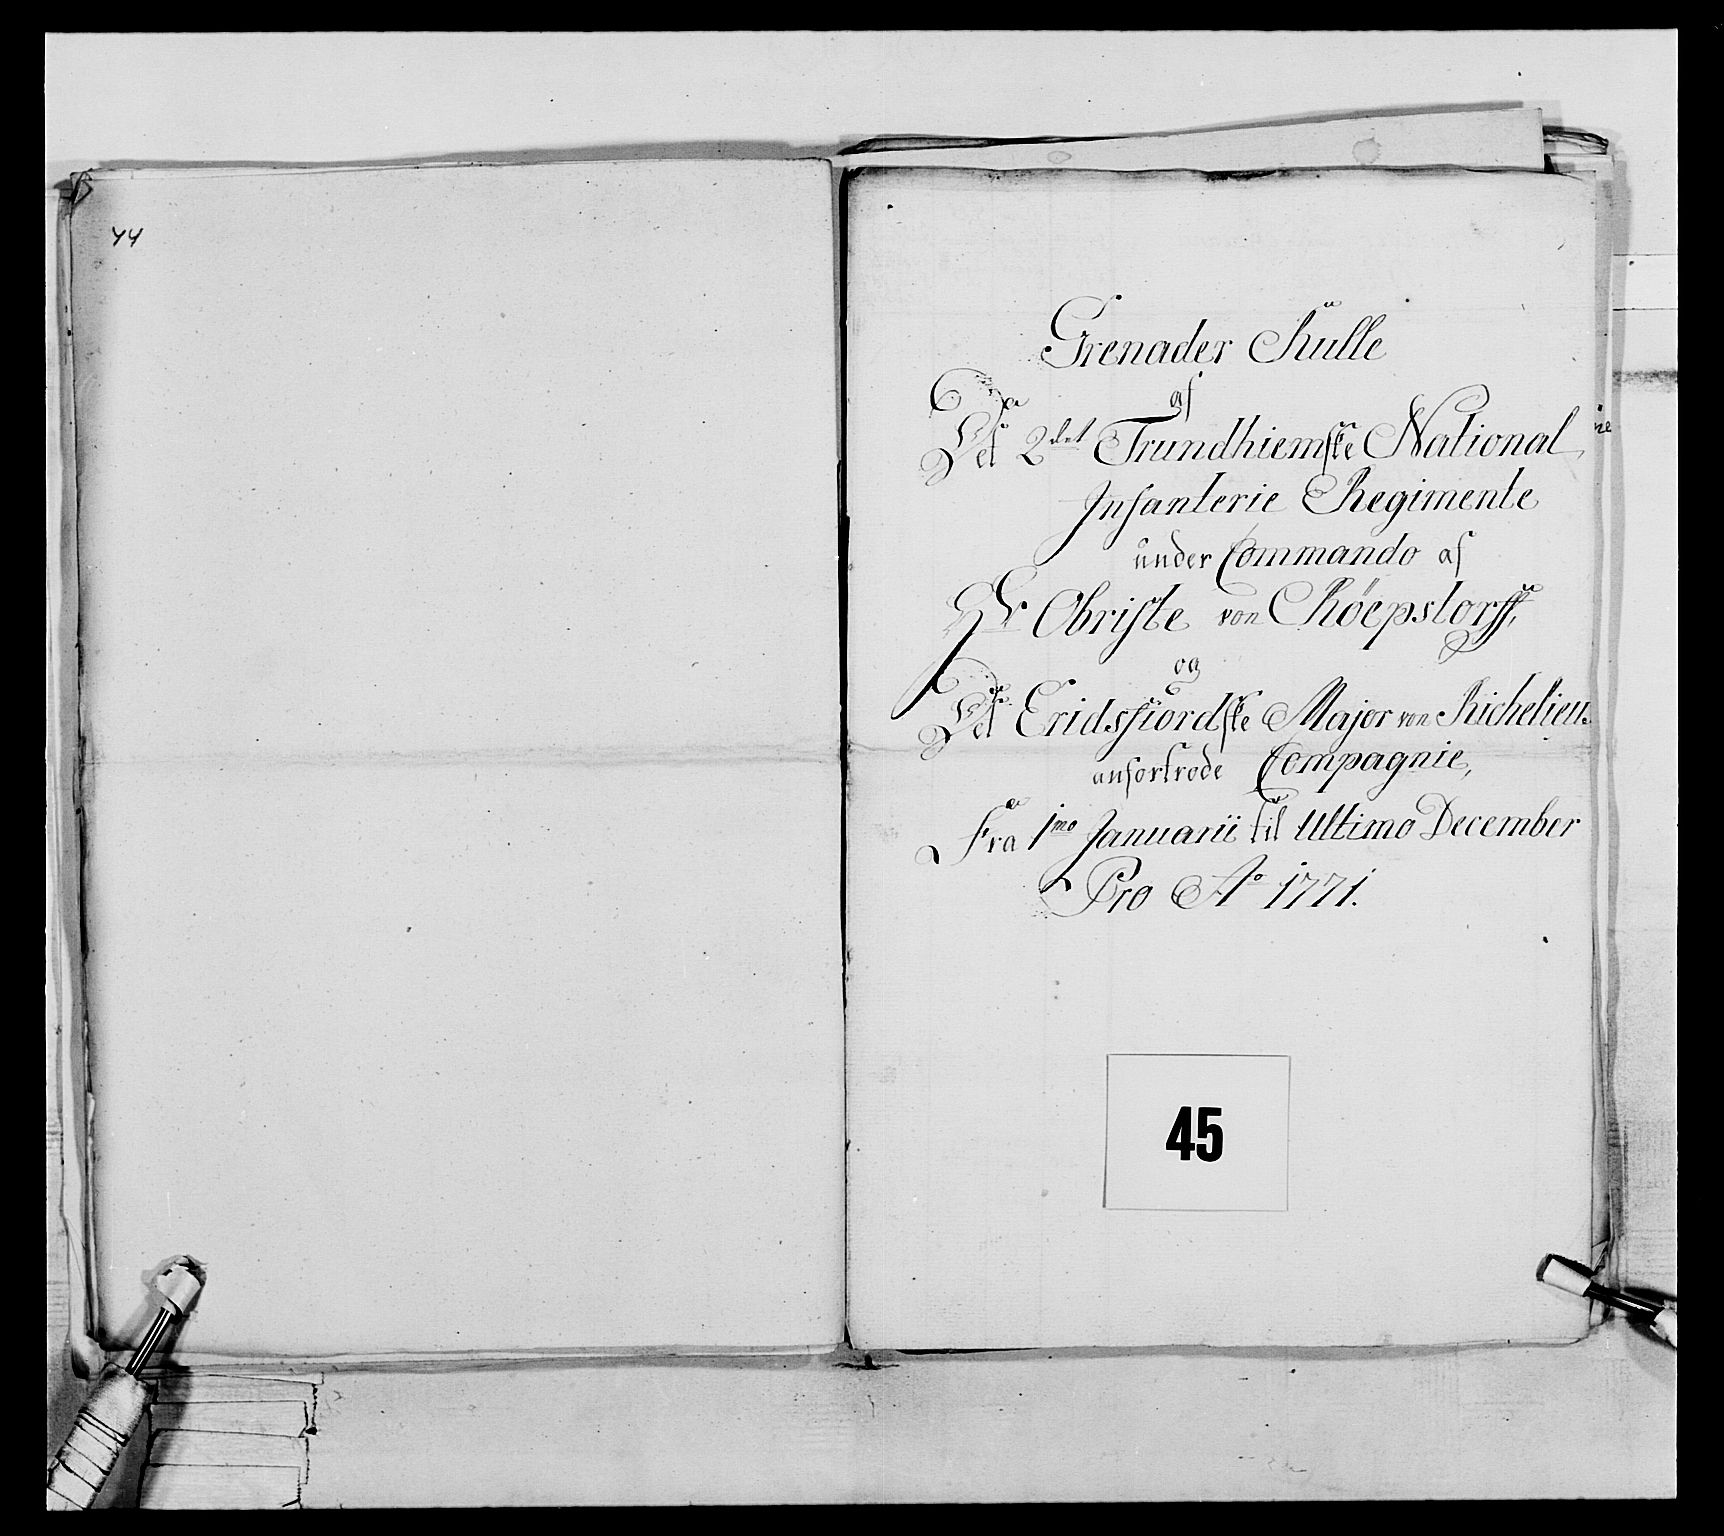 44
Grenader Rulle
af
Det 2det Trundhiemske National
Infanterie Regimente
under Commando af
Hr Obriste von Röepstorff,
og
Det Eridsfiordske Major von Richelieu
anfortrode Compagnie,
Fra 1mo Januarii til Ultimo December
Pro Ao 1771.
45